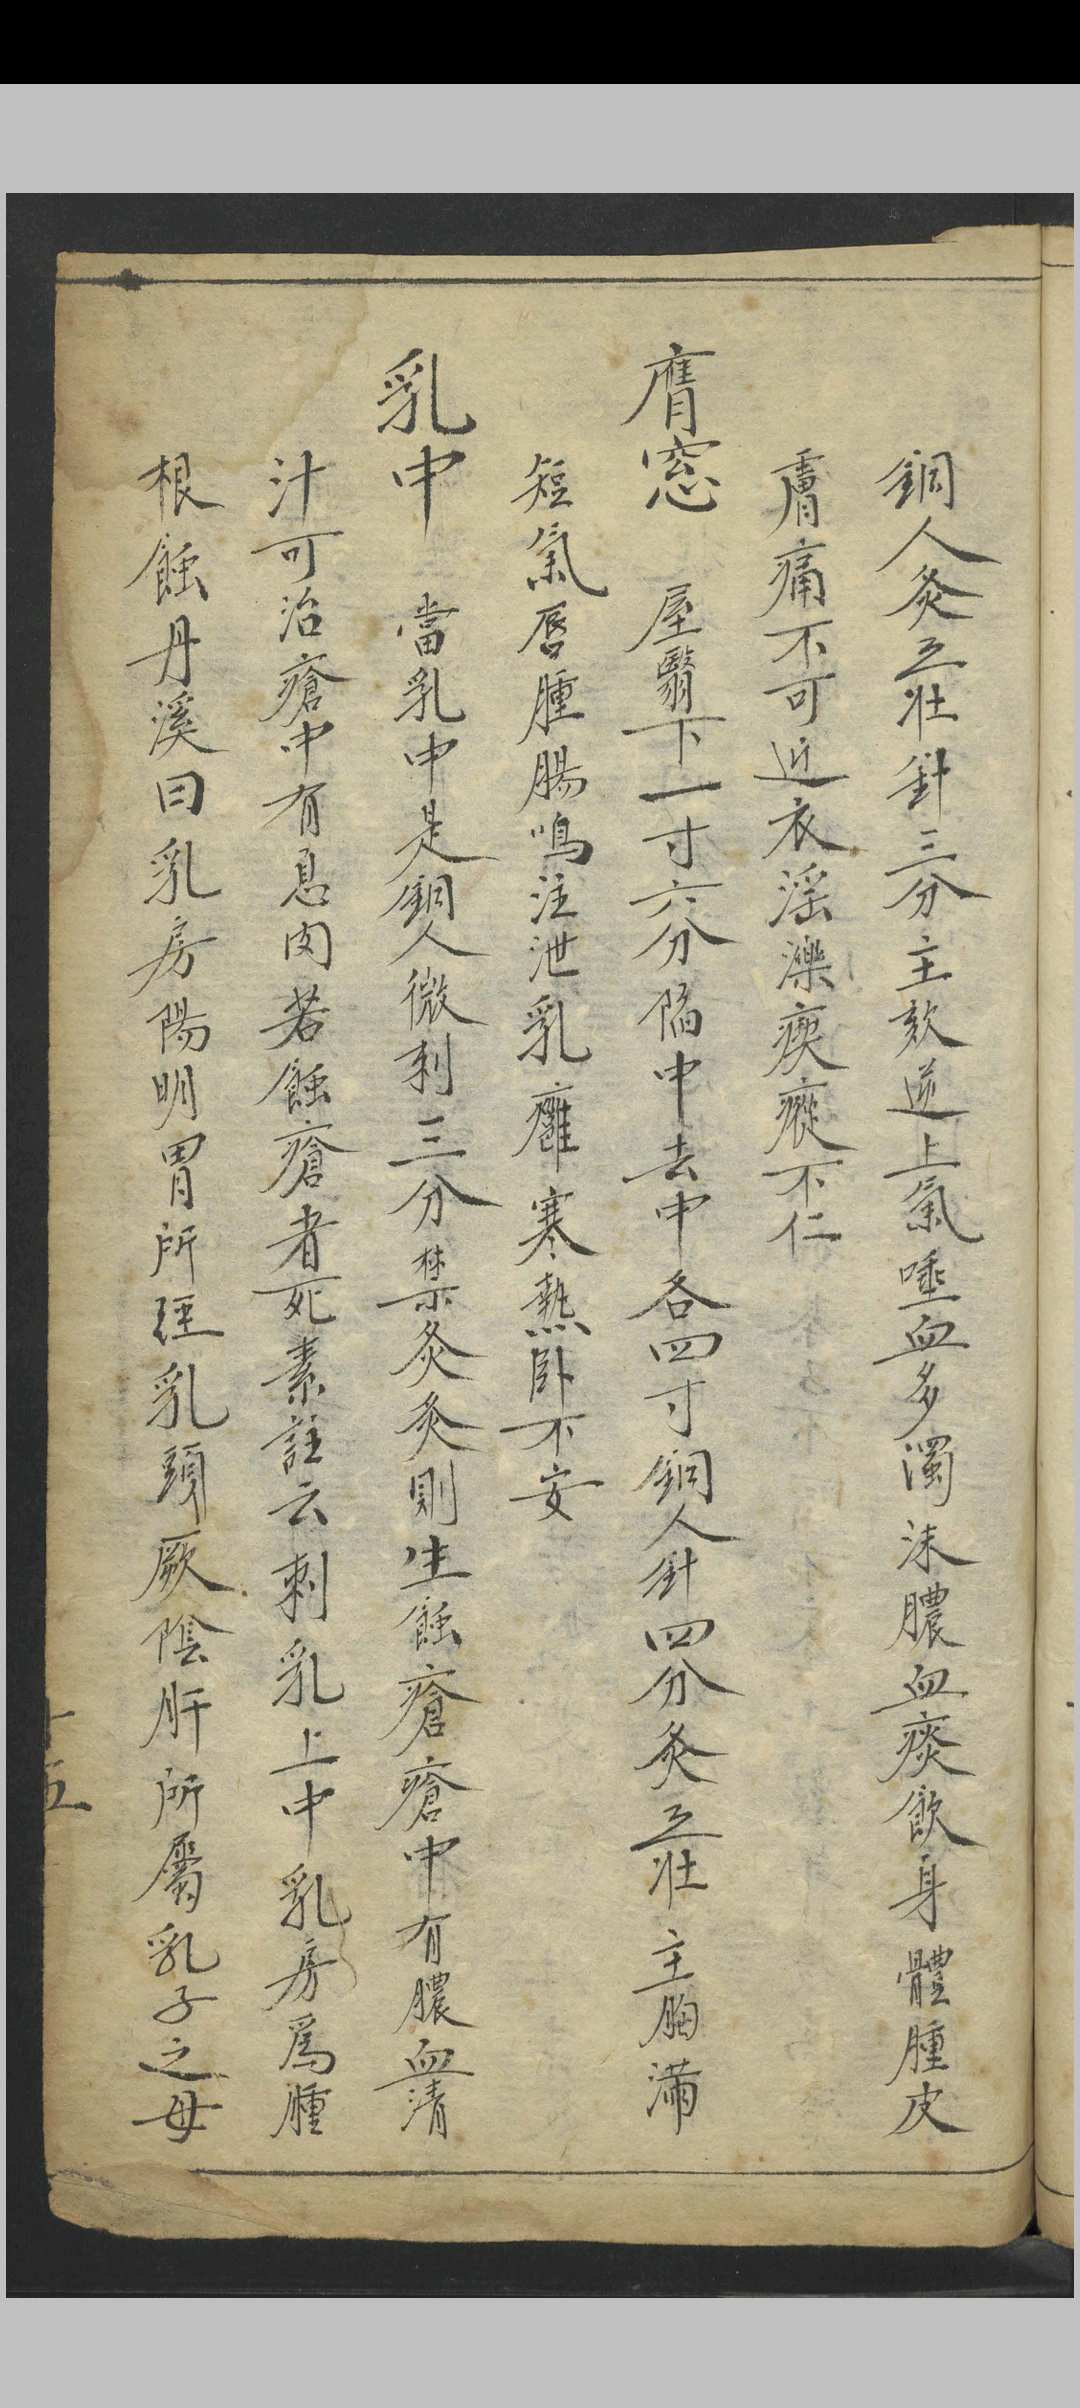 銅人灸五壯針三分主欬逆上氣唾血多濁沫膿血痰飲身體腫皮
膚痛不可近衣淫濼瘈瘲不仁
膺窓 屋翳下一寸六分陷中去中各四寸銅人針四分灸五壯主胸滿
短氣唇腫腸鳴注泄乳癰寒熱卧不安
乳中 當乳中是銅人微刺三分禁灸灸則生蝕瘡瘡中有膿血清
汁可治瘡中有息肉若蝕瘡者死素註云刺乳上中乳房爲腫
根蝕丹溪曰乳房陽明胃所經乳頭厥陰肝所屬乳子之母